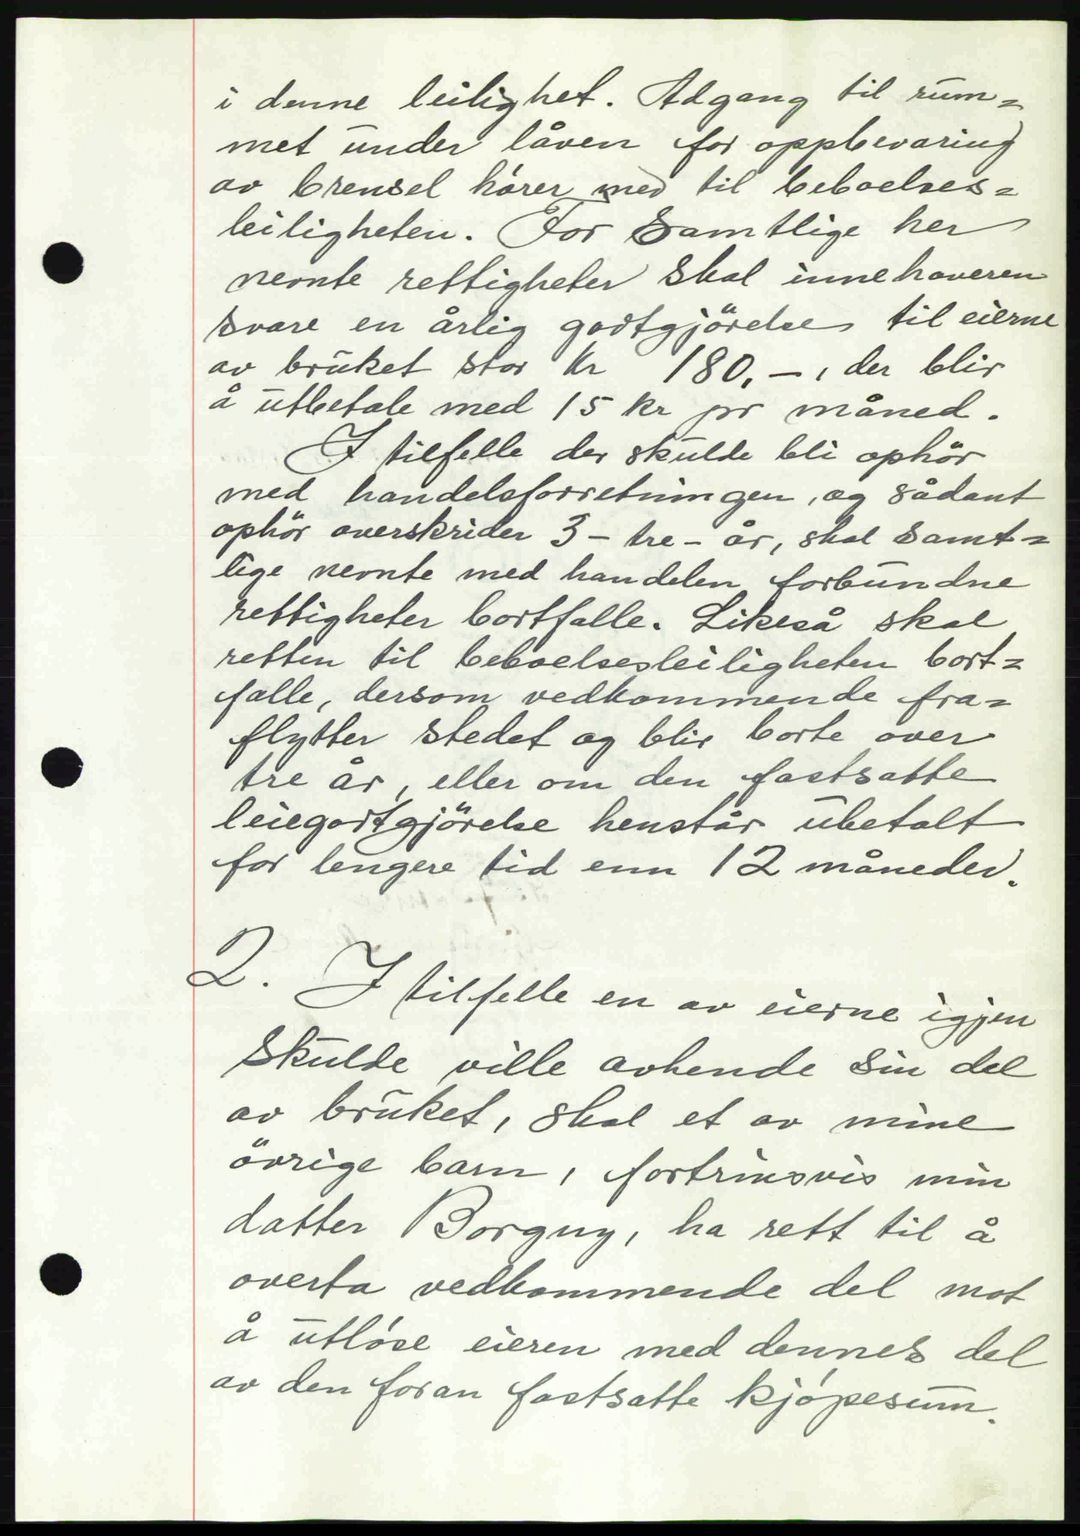 i denne leilighet. Adgang til rum=
met under låven for oppbevaring
av brensel hører med til beboelses=
leiligheten. For samtlige her
nevnte rettigheter skal innehaveren
svare en årlig godtgjörelse til eierne
av bruket stor kr 180.–, der blir
å utbetale med 15 kr pr måned.
I tilfelle der skulde bli ophör
med handelsforretningen, og sådant
ophör overskrider 3 – tre – år, skal samt=
lige nevnte med handelen forbundne
rettigheter bortfalle. Likeså skal
retten til beboelsesleiligheten bort=
falle, dersom vedkommende fra=
flytter stedet og blir borte over
tre år, eller om den fastsatte
leiegodtgjörelse henstår ubetalt
for lengere tid enn 12 måneder.
2. I tilfelle en av eierne igjen
skulde ville avhende sin del
av bruket, skal et av mine
övrige barn, fortrinsvis min
datter Borgny, ha rett til å
overta vedkommende del mot
å utløse eieren med dennes del
av den foran fastsatte kjøpesum.